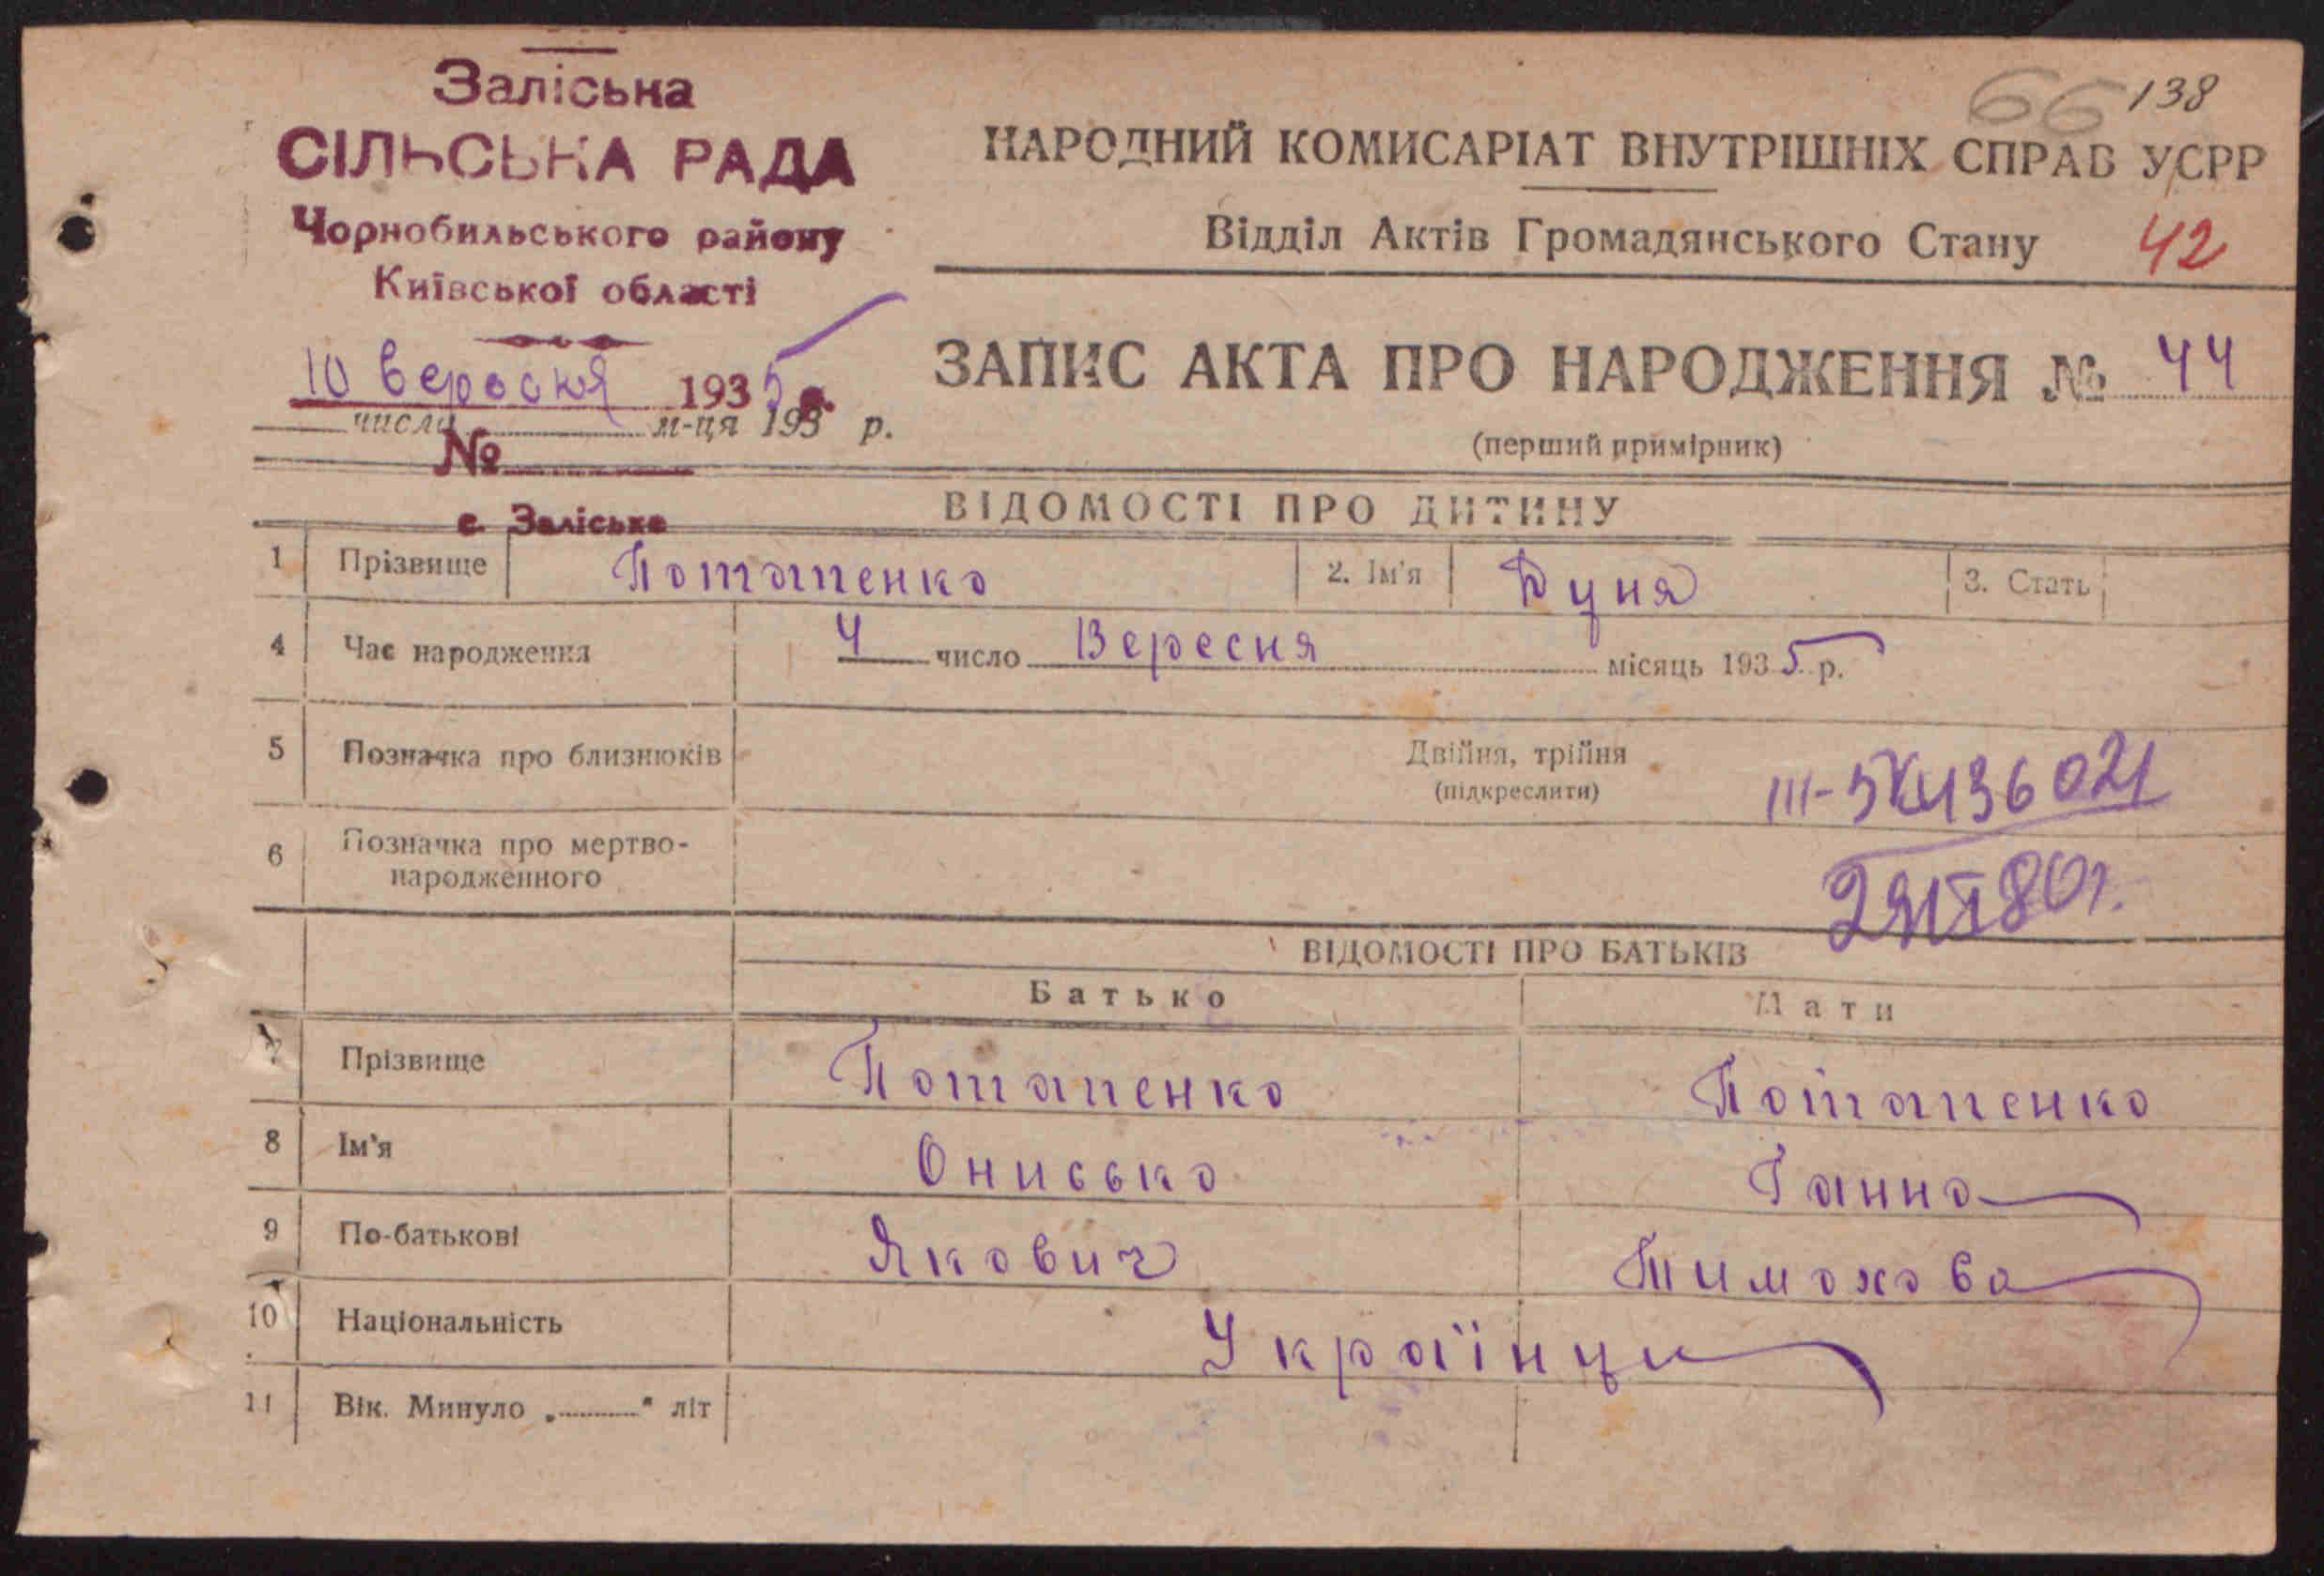 Заліська
СІЛЬСЬКА РАДА
Чорнобильського району
Київської області
10 вересня 1935 р.
числа м-ця 193 р.
№
с. Заліське
66 138
НАРОДНИЙ КОМИСАРІАТ ВНУТРІШНІХ СПРАВ УСРР
Відділ Актів Громадянського Стану 42
ЗАПИС АКТА ПРО НАРОДЖЕННЯ № 44
(перший примірник)
ВІДОМОСТІ ПРО ДИТИНУ
1 Прізвище Потапенко 2. Ім'я Дуня 3. Стать
4 Час народження 4 число Вересня місяць 1935 р.
5 Позначка про близнюків Двійня, трійня
(підкреслити)
6 Позначка про мертво-
народженного
ВІДОМОСТІ ПРО БАТЬКІВ
Батько Мати
7 Прізвище Потапенко Потапенко
8 Ім'я Онисько Ганна
9 По-батькові Якович Тимохова
10 Національність Українци
11 Вік. Минуло „ " літ